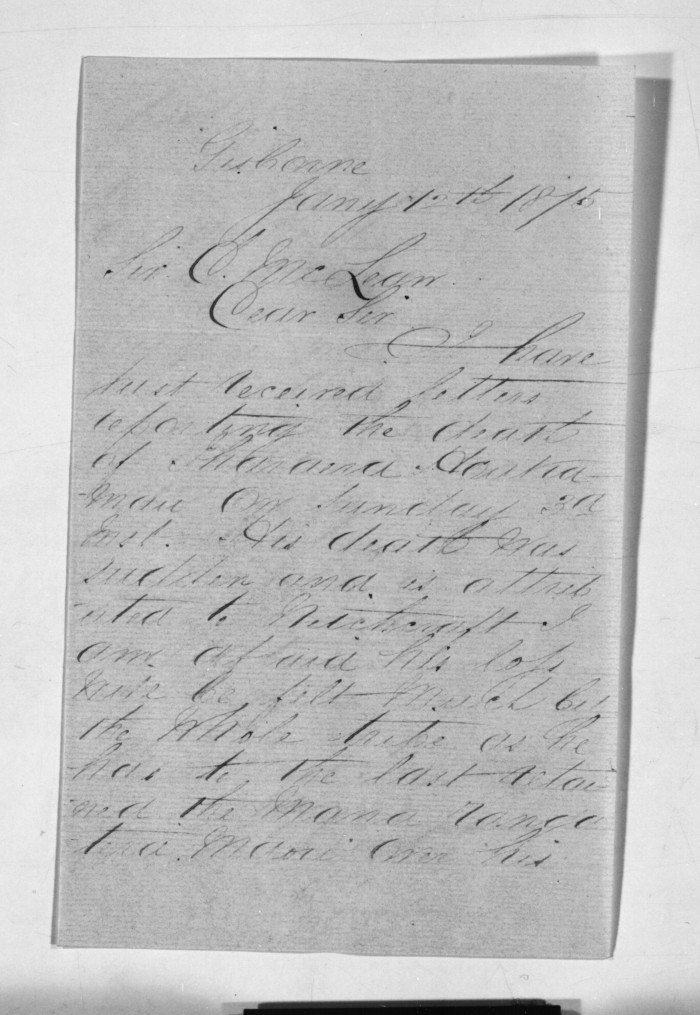 Gisborne
Jany 10th 1875
Sir D. McLean
Dear Sir
I have
just received letters
reporting the death
of Hoatia-
maii on Sunday 3rd
inst. His death was
sudden and is attrib
uted to Witchcraft I
am afraid his loss
will be felt much by
the whole tribe as he
has to the last retai-
ned the mana ranga
tira Maori over his